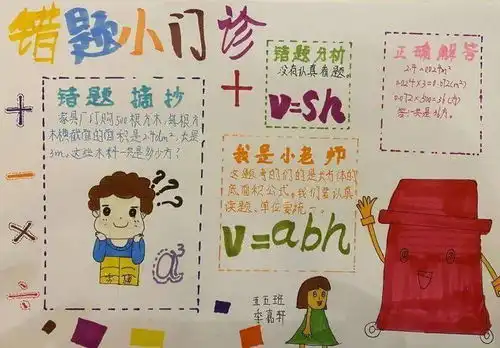 错题小门诊
错题摘抄
家具厂订购500根方木，每根方
木横截面的面积是2.4dm²，长是
3m。这些木料一共是多少方？
a³
错题分析
没有认真看题。
V=Sh
正确解答
2.4=0.024m²
0.024×3=0.072(m³)
0.072×500=36(方)
答：一共是36方。
我是小老师
这题考的们的是长方体的
底面积公式。我们要认真
读题，单位要统一
V=abh
五五班